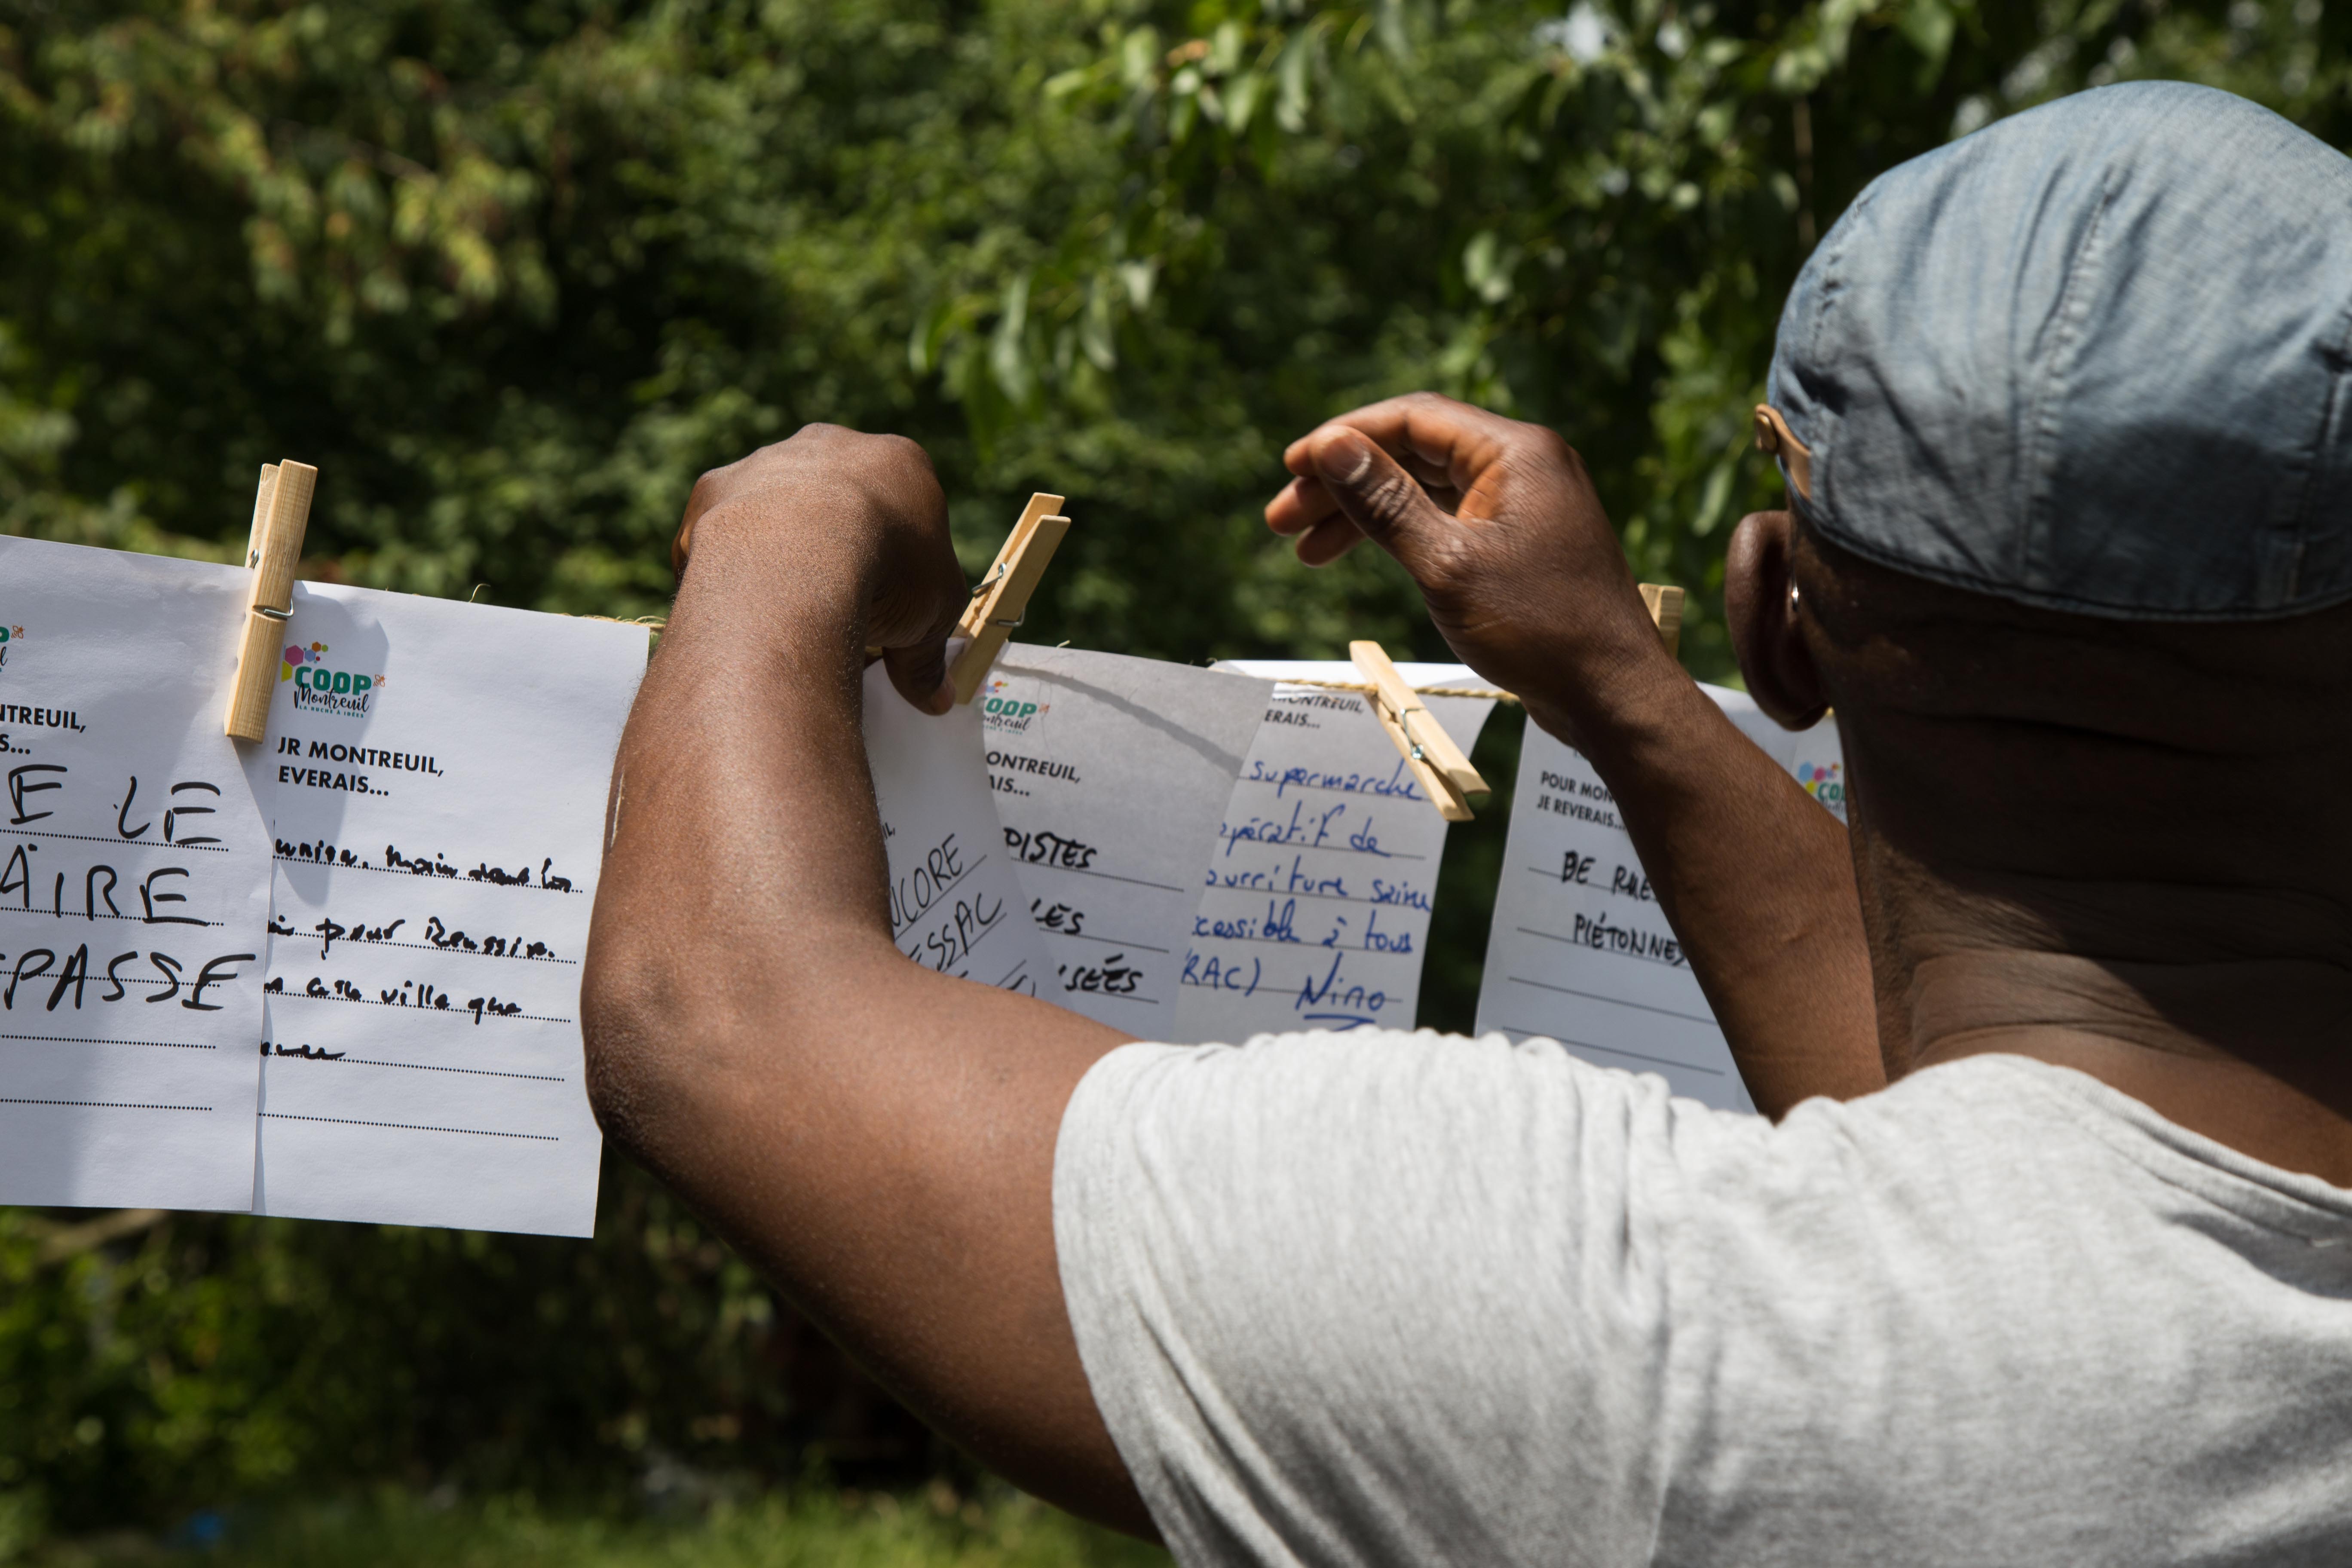 NTREUIL,
S...
E LE
AIRE
PASSE
COOP
Montreuil
LA RUCHE À IDÉES
UR MONTREUIL,
EVERAIS...
main dans la
pour Reussir.
ville que
COOP
ntreuil
ONTREUIL,
AIS...
NCORE
ESSAC
PISTES
LES
SÉES
MONTREUIL,
ERAIS...
supermarche
opératif de
ourriture saine
ccessible à tous
RAC) Nino
POUR MON
JE REVERAIS...
DE RUES
PIÉTONNES
CO